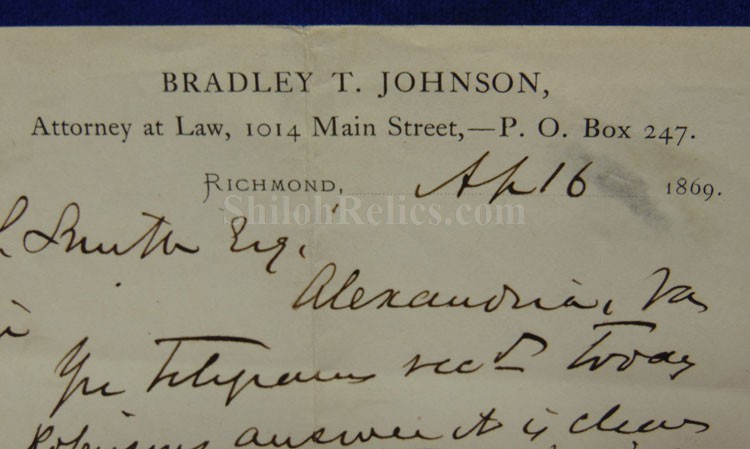 BRADLEY T. JOHNSON,
Attorney at Law, 1014 Main Street,—P. O. Box 247.
RICHMOND, Ap 16 1869.
ShilohRelics.com
Smith Esq.
Alexandria, Va
Yr telegram recd today
answer it is clear